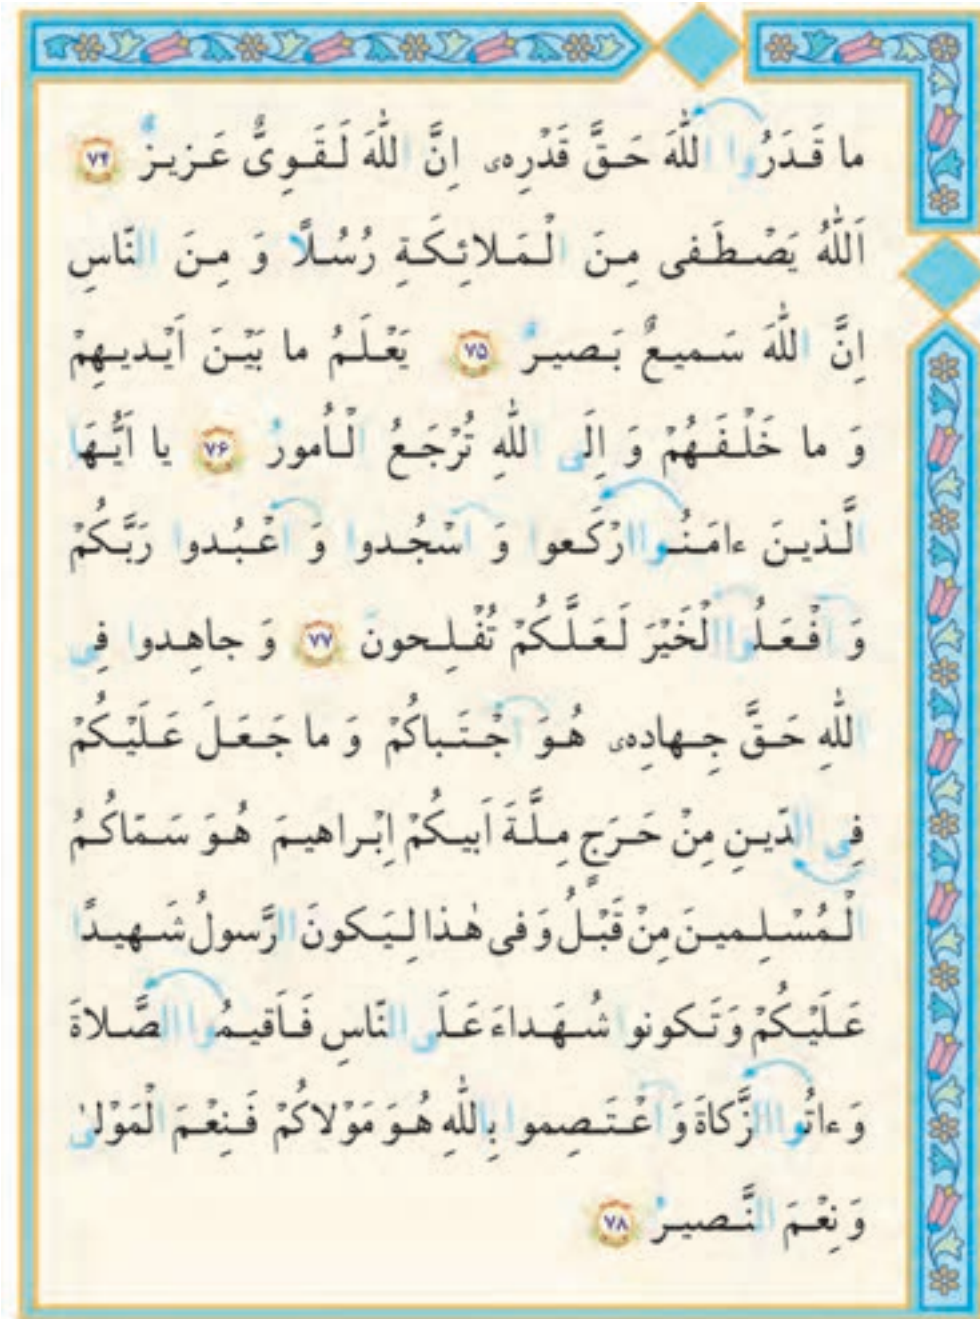 ما قَدَرُوا اللّٰهَ حَقَّ قَدْرِهی اِنَّ اللّٰهَ لَقَوِیٌّ عَزیزٌ ۷۴
اَللّٰهُ یَصْطَفی مِنَ الْمَلائِکَةِ رُسُلًا وَ مِنَ النّاسِ
اِنَّ اللّٰهَ سَمیعٌ بَصیرٌ ۷۵ یَعْلَمُ ما بَیْنَ اَیْدیهِمْ
وَ ما خَلْفَهُمْ وَ اِلَی اللّٰهِ تُرْجَعُ الْاُمورُ ۷۶ یا اَیُّهَا
الَّذینَ ءامَنُوا ارْکَعوا وَ اسْجُدوا وَ اعْبُدوا رَبَّکُمْ
وَ افْعَلُوا الْخَیْرَ لَعَلَّکُمْ تُفْلِحونَ ۷۷ وَ جاهِدوا فِی
اللّٰهِ حَقَّ جِهادِهی هُوَ اجْتَباکُمْ وَ ما جَعَلَ عَلَیْکُمْ
فِی الدّینِ مِنْ حَرَجٍ مِلَّةَ اَبیکُمْ اِبْراهیمَ هُوَ سَمّاکُمُ
الْمُسْلِمینَ مِنْ قَبْلُ وَ فی هٰذا لِیَکونَ الرَّسولُ شَهیدًا
عَلَیْکُمْ وَ تَکونوا شُهَداءَ عَلَی النّاسِ فَاَقیمُوا الصَّلاةَ
وَ ءاتُوا الزَّکاةَ وَ اعْتَصِموا بِاللّٰهِ هُوَ مَوْلاکُمْ فَنِعْمَ الْمَوْلیٰ
وَ نِعْمَ النَّصیرُ ۷۸